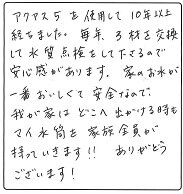 アクアス5を使用して10年以上
経ちました。毎年、3材を交換
して水質点検をして下さるので
安心感があります。家のお水が
一番おいしくて安全なので
我が家はどこへ出かける時も
マイ水筒を家族全員が
持っていきます!! ありがとう
ございます!